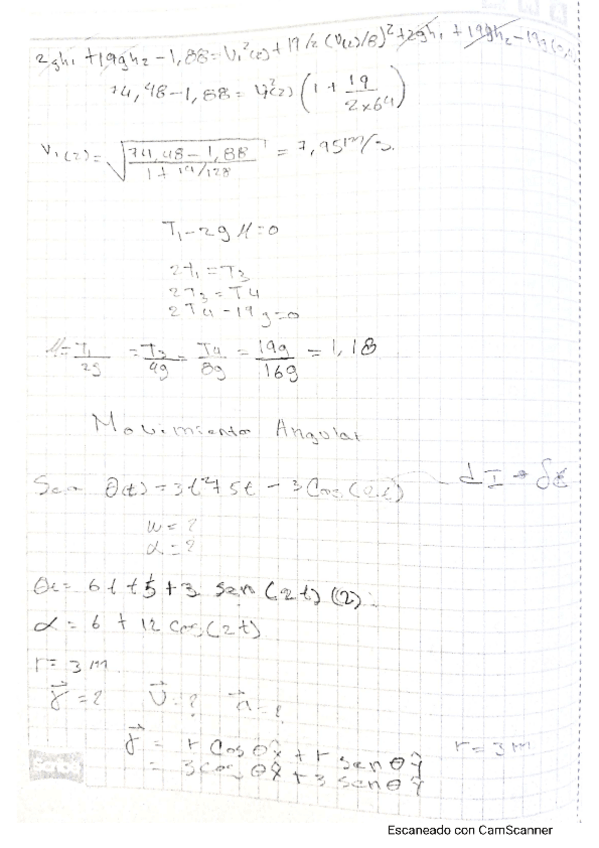 2gh₁ + 19gh₂ - 1,88 = V₁²(2) + 19/2 (V(2)/8)² + 2gh₁ + 19gh₂ - 19g
74,48 - 1,88 = V₁²(2) (1 + 19/2x64)
V₁(2) = √(74,48 - 1,88 / 1 + 19/128) = 7,95 m/s.
T₁ - 2gM = 0
2t₁ = T3
2T3 = T4
2T4 - 19g = 0
M = T₁/2g = T3/4g = T4/8g = 19g/16g = 1,18
Movimiento Angular
Sea θ(t) = 3t² + 5t - 3Cos(2t)
w = ?
α = ?
6t + 5 + 3 sen(2t)(2)
α = 6 + 12 Cos(2t)
r = 3 m
r⃗ = ? v⃗ = ? a⃗ = ?
r⃗ = r Cos θx̂ + r sen θŷ r = 3 m
= 3cos θx̂ + 3 sen θŷ
Escaneado con CamScanner